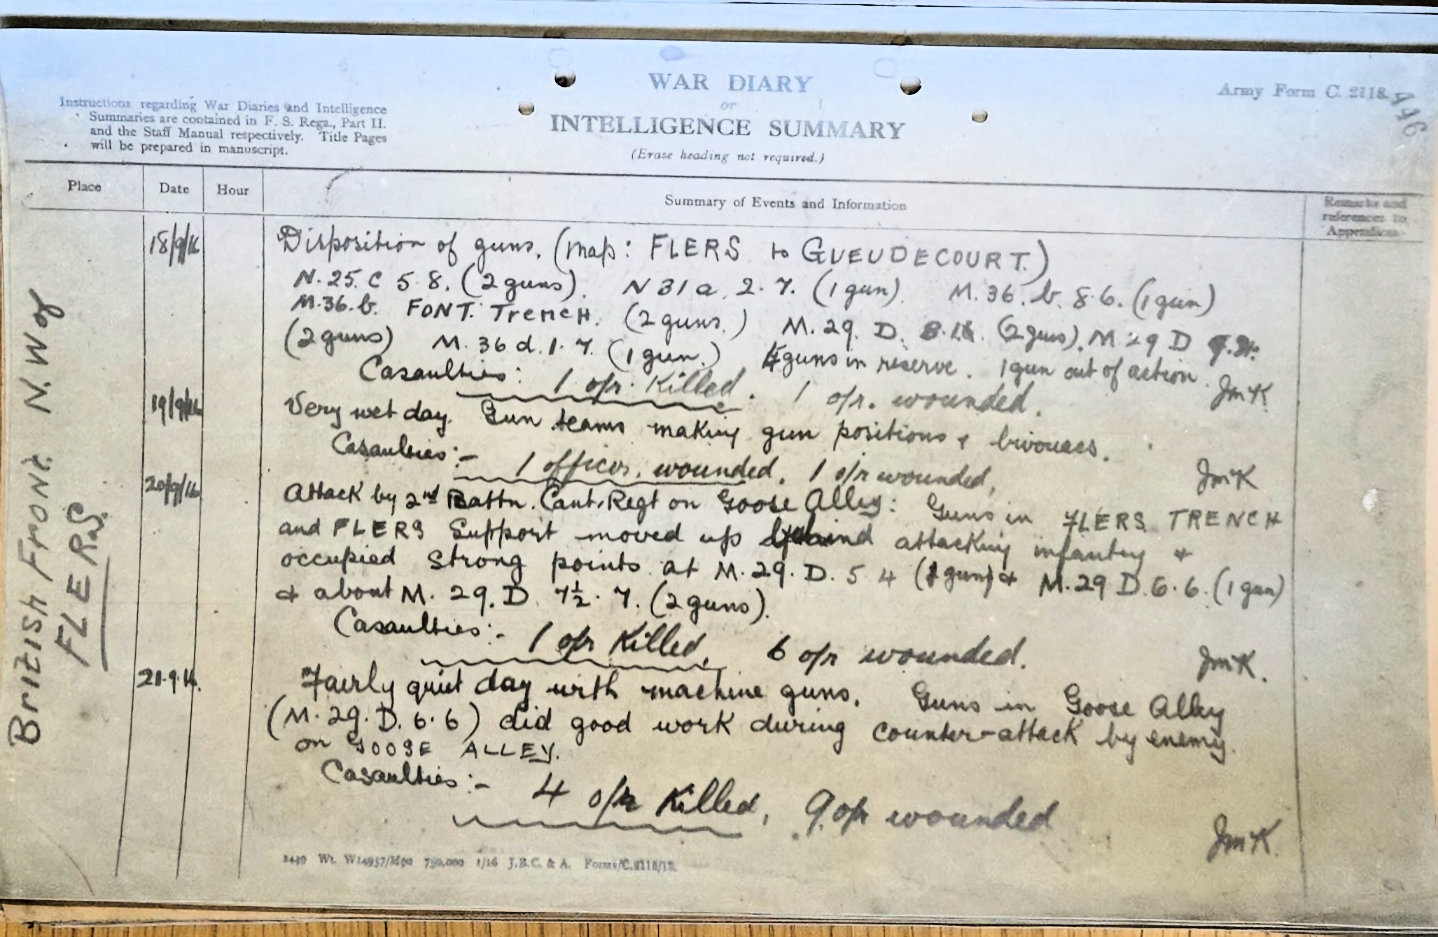 WAR DIARY
or
INTELLIGENCE SUMMARY
(Erase heading not required.)
Army Form C. 2118.
446
Instructions regarding War Diaries and Intelligence
Summaries are contained in F. S. Regs., Part II.
and the Staff Manual respectively. Title Pages
will be prepared in manuscript.
Place
Date
Hour
Summary of Events and Information
Remarks and
references to
Appendices
British Front. N.W of
FLERS.
18/9/16
Disposition of guns. (Map: FLERS to GUEUDECOURT.)
N.25.C 5.8. (2 guns). N 31 a. 2.7. (1 gun). M.36.b. 8.6. (1 gun)
M.36.b. FONT. Trench. (2 guns.) M.29.D. (2 guns). M.29 D
(2 guns) M.36 d. 1.7. (1 gun.) 4 guns in reserve. 1 gun out of action.
Casaulties: 1 o/r. Killed. 1 o/r. wounded. JMcK
19/9/16
Very wet day. Gun teams making gun positions & bivouacs.
Casaulties:- 1 officer. wounded, 1 o/r wounded, JMcK
20/9/16
Attack by 2nd Battn. Cant. Regt on Goose Alley: Guns in FLERS TRENCH
and FLERS Support moved up behind attacking infantry &
occupied strong points at M.29.D.5 4 ( gun) & M.29 D.6.6. (1 gun)
& about M.29.D 7½.7. (2 guns).
Casaulties:- 1 o/r Killed, 6 o/r wounded. JMcK.
21.9.16.
Fairly quiet day with machine guns. Guns in Goose Alley
(M.29.D.6.6) did good work during counter-attack by enemy.
on GOOSE ALLEY.
Casaulties:- 4 o/r Killed, 9 o/r wounded
JMcK.
2449 Wt. W14957/M90 750,000 1/16 J.B.C. & A. Forms/C.2118/12.